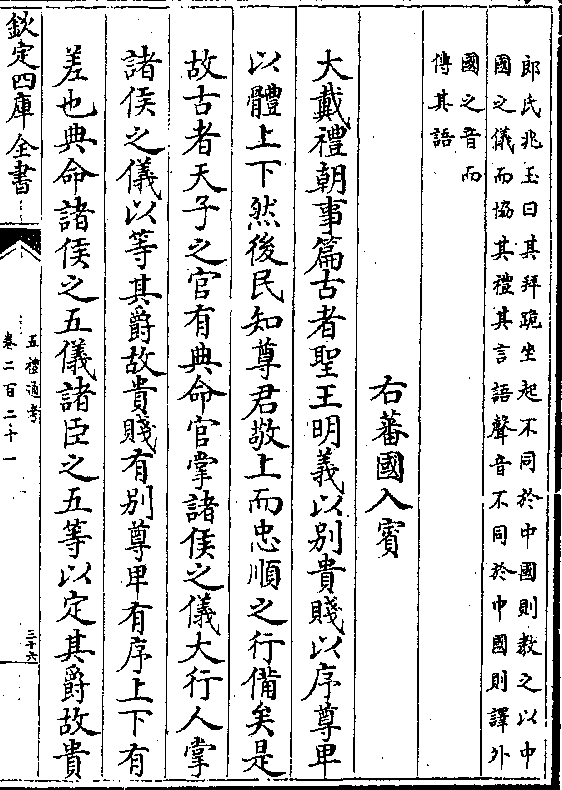 郎氏兆玉曰其拜跪坐起不同於中國則教之以中
國之儀而協其禮其言語聲音不同於中國則譯外
國之音而
傳其語
右蕃國入賓
大戴禮朝事篇古者聖王明義以別貴賤以序尊卑
以體上下然後民知尊君敬上而忠順之行備矣是
故古者天子之官有典命官掌諸侯之儀大行人掌
諸侯之儀以等其爵故貴賤有別尊卑有序上下有
差也典命諸侯之五儀諸臣之五等以定其爵故貴
欽定四庫全書
五禮通考
卷二百二十一
三十六